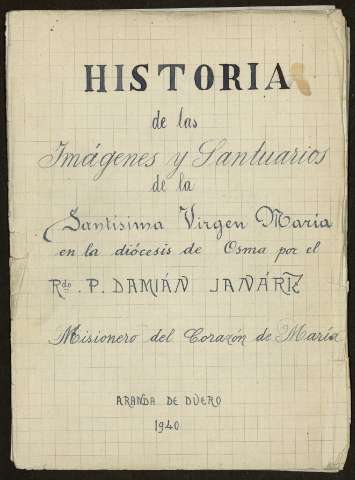 HISTORIA
de las
Imágenes y Santuarios
de la
Santísima Virgen María
en la diócesis de Osma por el
Rdo. P. DAMIÁN JANÁRIZ
Misionero del Corazón de María
ARANDA DE DUERO
1940